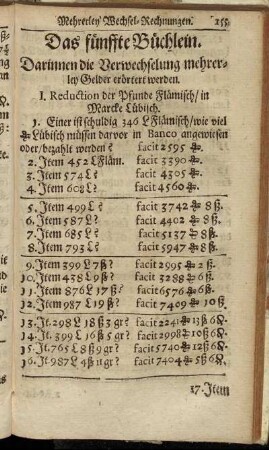 Mehrerley Wechsel-Rechnungen. 255
Das fünffte Büchlein.
Darinnen die Verwechselung mehrer-
ley Gelder erörtert werden.
I. Reduction der Pfunde Flämisch/ in
Marcke Lübisch.
1. Einer ist schuldig 346 ℔ Flämisch/ wie viel
₰ Lübisch müssen darvor in Banco angewiesen
oder/bezahlt werden? facit 2595 ₰.
2. Item 452 ℔ Fläm. facit 3390 ₰.
3. Item 574 ℔? facit 4305 ₰.
4. Item 608 ℔? facit 4560 ₰.
5. Item 499 ℔? facit 3742 ₰ 8 ß.
6. Item 587 ℔? facit 4402 ₰ 8 ß.
7. Item 685 ℔? facit 5137 ₰ 8 ß.
8. Item 793 ℔? facit 5947 ₰ 8 ß.
9. Item 399 ℔ 7 ß? facit 2995 ₰ 2 ß.
10. Item 438 ℔ 9 ß? facit 3288 ₰ 6 ß.
11. Item 876 ℔ 17 ß? facit 6576 ₰ 6 ß.
12. Item 987 ℔ 19 ß? facit 7409 ₰ 10 ß
13. It. 298 ℔ 18 ß 3 gr? facit 2241 ₰ 13 ß 6 ₰.
14. It. 399 ℔ 16 ß 5 gr? facit 2998 ₰ 10 ß 6 ₰.
15. It. 765 ℔ 8 ß 9 gr? facit 5740 ₰ 12 ß 6 ₰.
16. It. 987 ℔ 4 ß 11 gr? facit 7404 ₰ 5 ß 6 ₰
17. Item